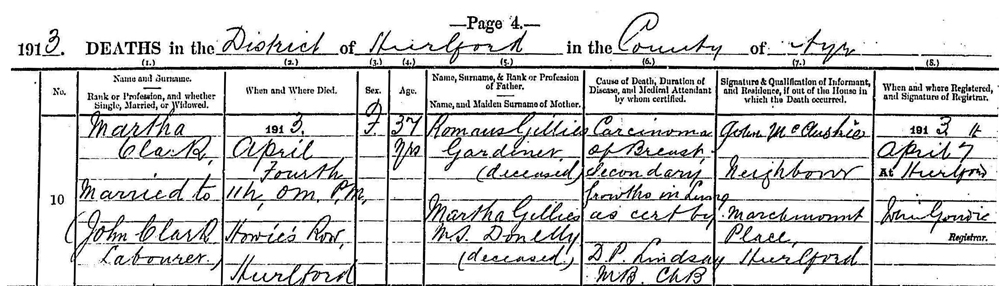 —Page 4.—
1913. DEATHS in the District of Hurlford in the County of Ayr
(1.) (2.) (3.) (4.) (5.) (6.) (7.) (8.)
No.
Name and Surname.
Rank or Profession, and whether
Single, Married, or Widowed.
When and Where Died.
Sex.
Age.
Name, Surname, & Rank or Profession
of Father.
Name, and Maiden Surname of Mother.
Cause of Death, Duration of
Disease, and Medical Attendant
by whom certified.
Signature & Qualification of Informant,
and Residence, if out of the House in
which the Death occurred.
When and where Registered,
and Signature of Registrar.
10
Martha
Clark,
Married to
(John Clark
Labourer)
1913.
April
Fourth
11h, 0m. P.M.
Howie's Row,
Hurlford
F
37
yrs
Gillies
Gardener
(deceased)
Martha Gillies
M.S. Donelly
(deceased)
Carcinoma
of Breast,
Secondary
growths in Lung
as cert by
D.P. Lindsay
M.B. Ch.B
John
Neighbour
Marchmount
Place,
Hurlford
1913
April 7
At Hurlford
Goudie
Registrar.